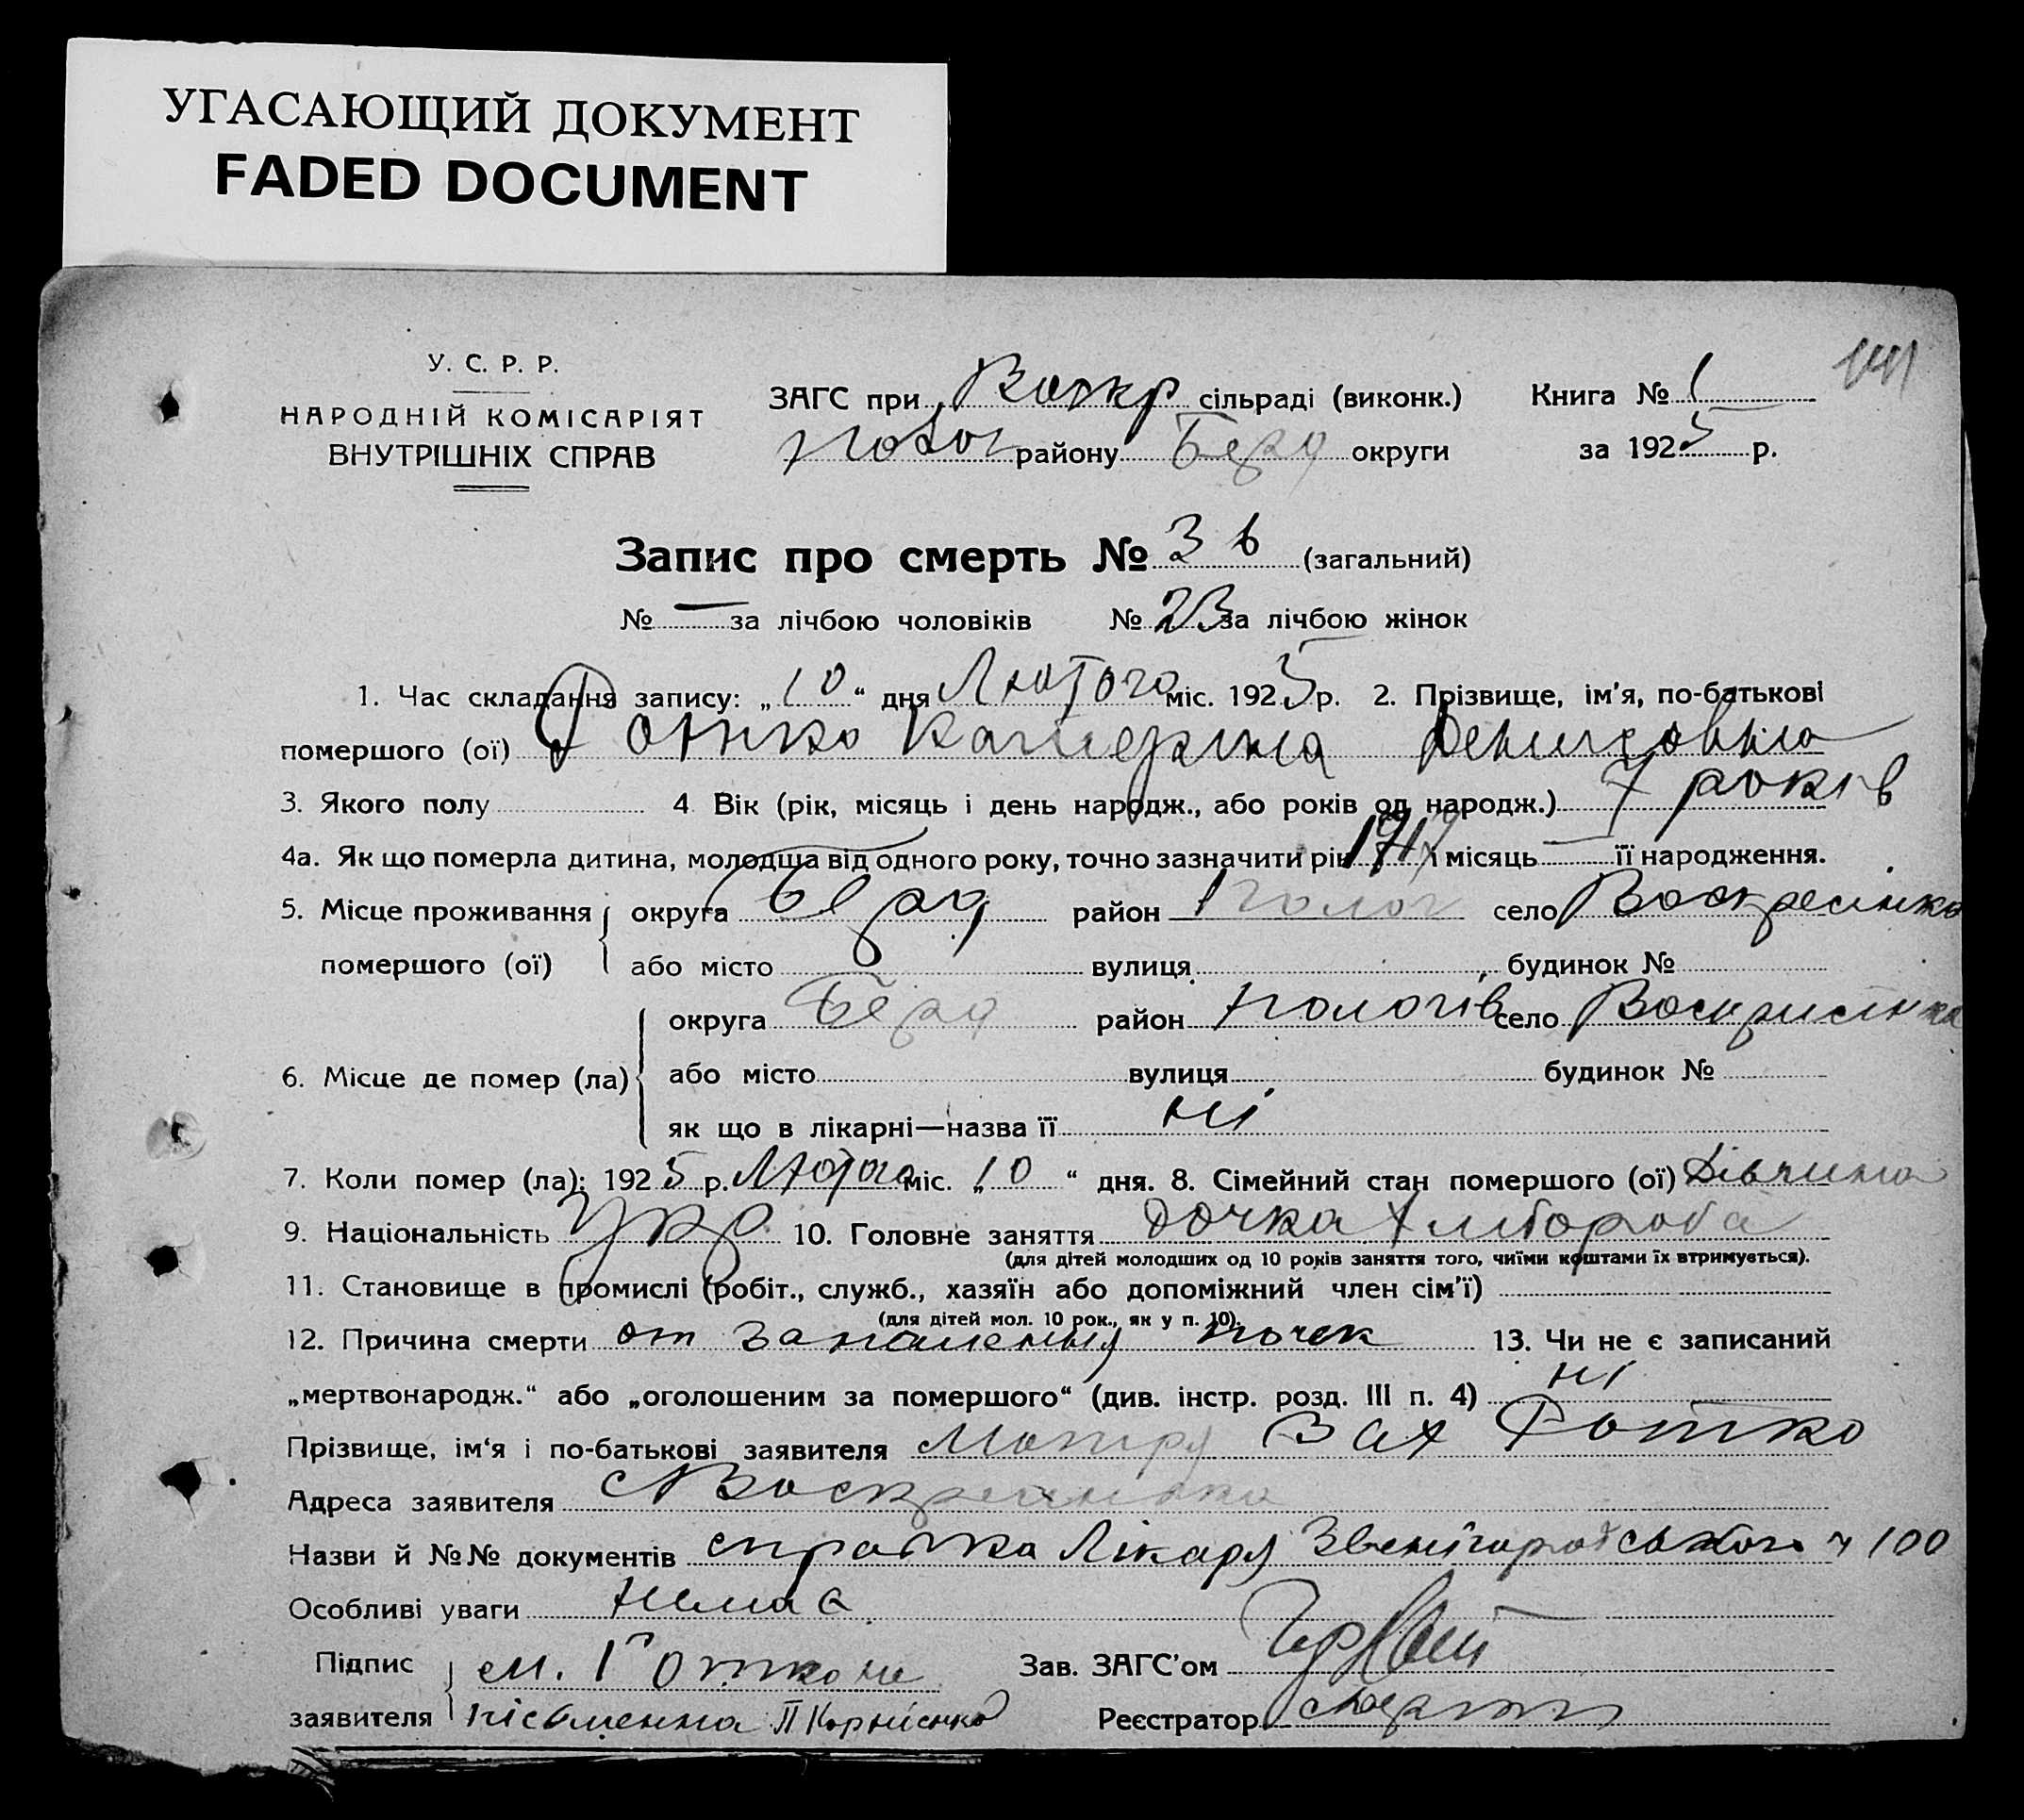 УГАСАЮЩИЙ ДОКУМЕНТ
FADED DOCUMENT
У. С. Р. Р.
НАРОДНІЙ КОМІСАРІЯТ
ВНУТРІШНІХ СПРАВ
ЗАГС при Воскр сільраді (виконк.)
Полог району Берд округи
Книга № 1
за 1925 р.
Запис про смерть № 36 (загальний)
№ — за лічбою чоловіків № 23 за лічбою жінок
1. Час складання запису: „10“ дня Лютого міс. 1925 р. 2. Прізвище, ім'я, по-батькові
помершого (ої) Катерина Денисовна
3. Якого полу 4 Вік (рік, місяць і день народж., або років од народж.) 7 років
4а. Як що померла дитина, молодща від одного року, точно зазначити рік 1917 і місяць — її народження.
5. Місце проживання помершого (ої) округа Берд район Полог село Воскресінка
або місто вулиця будинок №
6. Місце де помер (ла) округа Берд район Пологів село Воскрисінка
або місто вулиця будинок №
як що в лікарні—назва її ні
7. Коли помер (ла): 1925 р. Лютого міс. „10“ дня. 8. Сімейний стан помершого (ої) Дівчина
9. Національність Укр 10. Головне заняття дочка хлібороба
(для дітей молодших од 10 років заняття того, чиїми коштами їх втримується).
11. Становище в промислі (робіт., служб., хазяїн або допоміжний член сім'ї)
(для дітей мол. 10 рок., як у п. 10).
12. Причина смерти от запалення почек 13. Чи не є записаний
„мертвонародж.“ або „оголошеним за помершого“ (див. інстр. розд. III п. 4) ні
Прізвище, ім'я і по-батькові заявителя Мотря Вах
Адреса заявителя с Воскресінка
Назви й №№ документів справка Лікаря Звенігородського ч 100
Особливі уваги немає
Підпис заявителя м. не
письменна П Корнієнко
Зав. ЗАГС'ом
Реєстратор